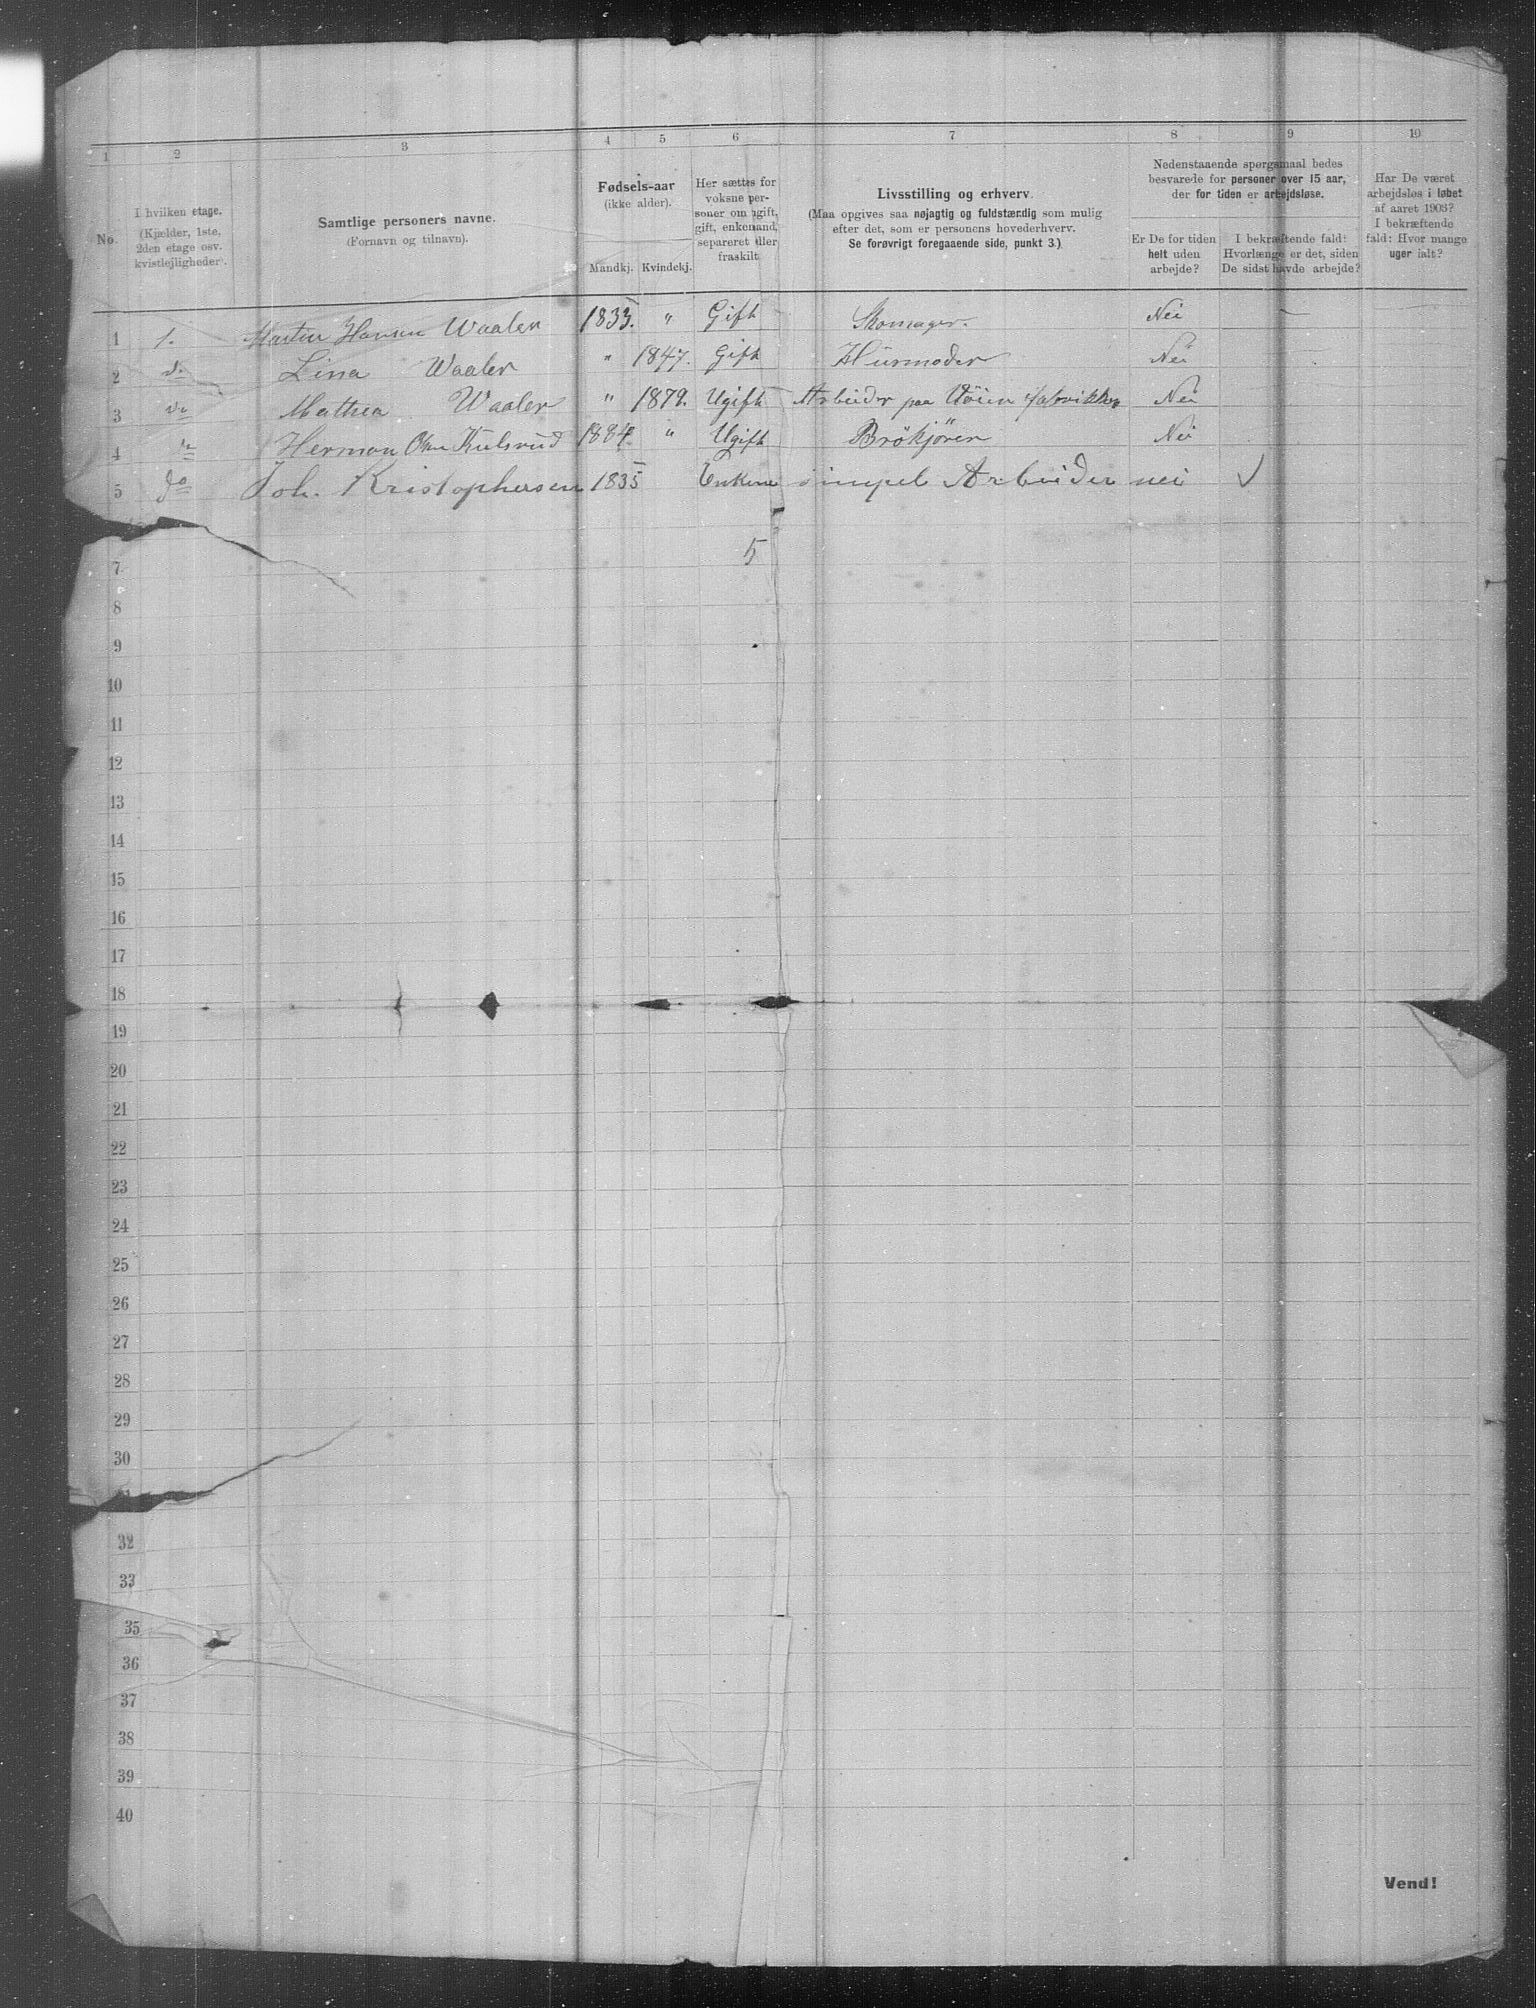 1 2 3 4 5 6 7 8 9 10
No.
I hvilken etage.
(Kjælder, 1ste,
2den etage osv.
kvistlejligheder).
Samtlige personers navne.
(Fornavn og tilnavn).
Fødsels-aar
(ikke alder).
Mandkj. Kvindekj.
Her sættes for
voksne per-
soner om ugift,
gift, enkemand,
separeret eller
fraskilt.
Livsstilling og erhverv.
(Maa opgives saa nøjagtig og fuldstændig som mulig
efter det, som er personens hovederhverv.
Se forøvrigt foregaaende side, punkt 3.)
Nedenstaaende spørgsmaal bedes
besvarede for personer over 15 aar,
der for tiden er arbejdsløse.
Er De for tiden
helt uden
arbejde?
I bekræftende fald:
Hvorlænge er det, siden
De sidst havde arbejde?
Har De været
arbejdsløs i løbet
af aaret 1905?
I bekræftende
fald: Hvor mange
uger ialt?
1 1. Martin Hansen Waaler 1833. " Gift Skomager. Nei —
2 do Lina Waaler " 1847. Gift Husmoder Nei
3 do Mathea Waaler " 1879. Ugift Arbeider paa Vøien fabrikker Nei
4 do Herman Kulsrud 1884. " Ugift Brökjörer Nei
5 do Joh. Kristophersen 1835 Enkem simpel Arbeider nei ✓
5
7
8
9
10
11
12
13
14
15
16
17
18
19
20
21
22
23
24
25
26
27
28
29
30
32
33
35
36
37
38
39
40
Vend!